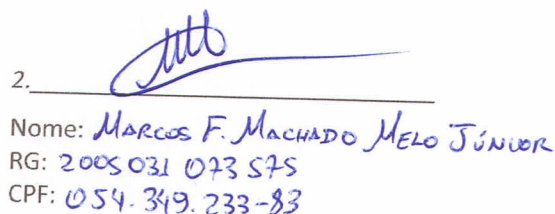 2.
Nome: Marcos F. Machado Melo Júnior
RG: 2005 031 073 575
CPF: 054.349.233-83